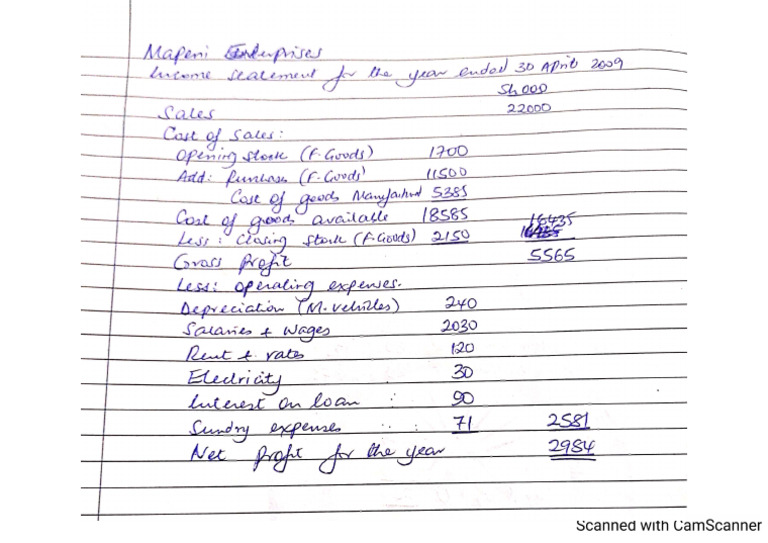 Mapeni Enterprises
Income statement for the year ended 30 April 2009
Sh 000
Sales 22000
Cost of sales:
Opening stock (F. Goods) 1700
Add: Purchases (F. Goods) 11500
Cost of goods Manufactured 5385
Cost of goods available 18585 16435
Less: Closing stock (F. Goods) 2150
Gross Profit 5565
Less: operating expenses.
Depreciation (M. vehicles) 240
Salaries + wages 2030
Rent + rates 120
Electricity 30
Interest on loan : 90
Sundry expenses : 71 2581
Net Profit for the year 2984
Scanned with CamScanner